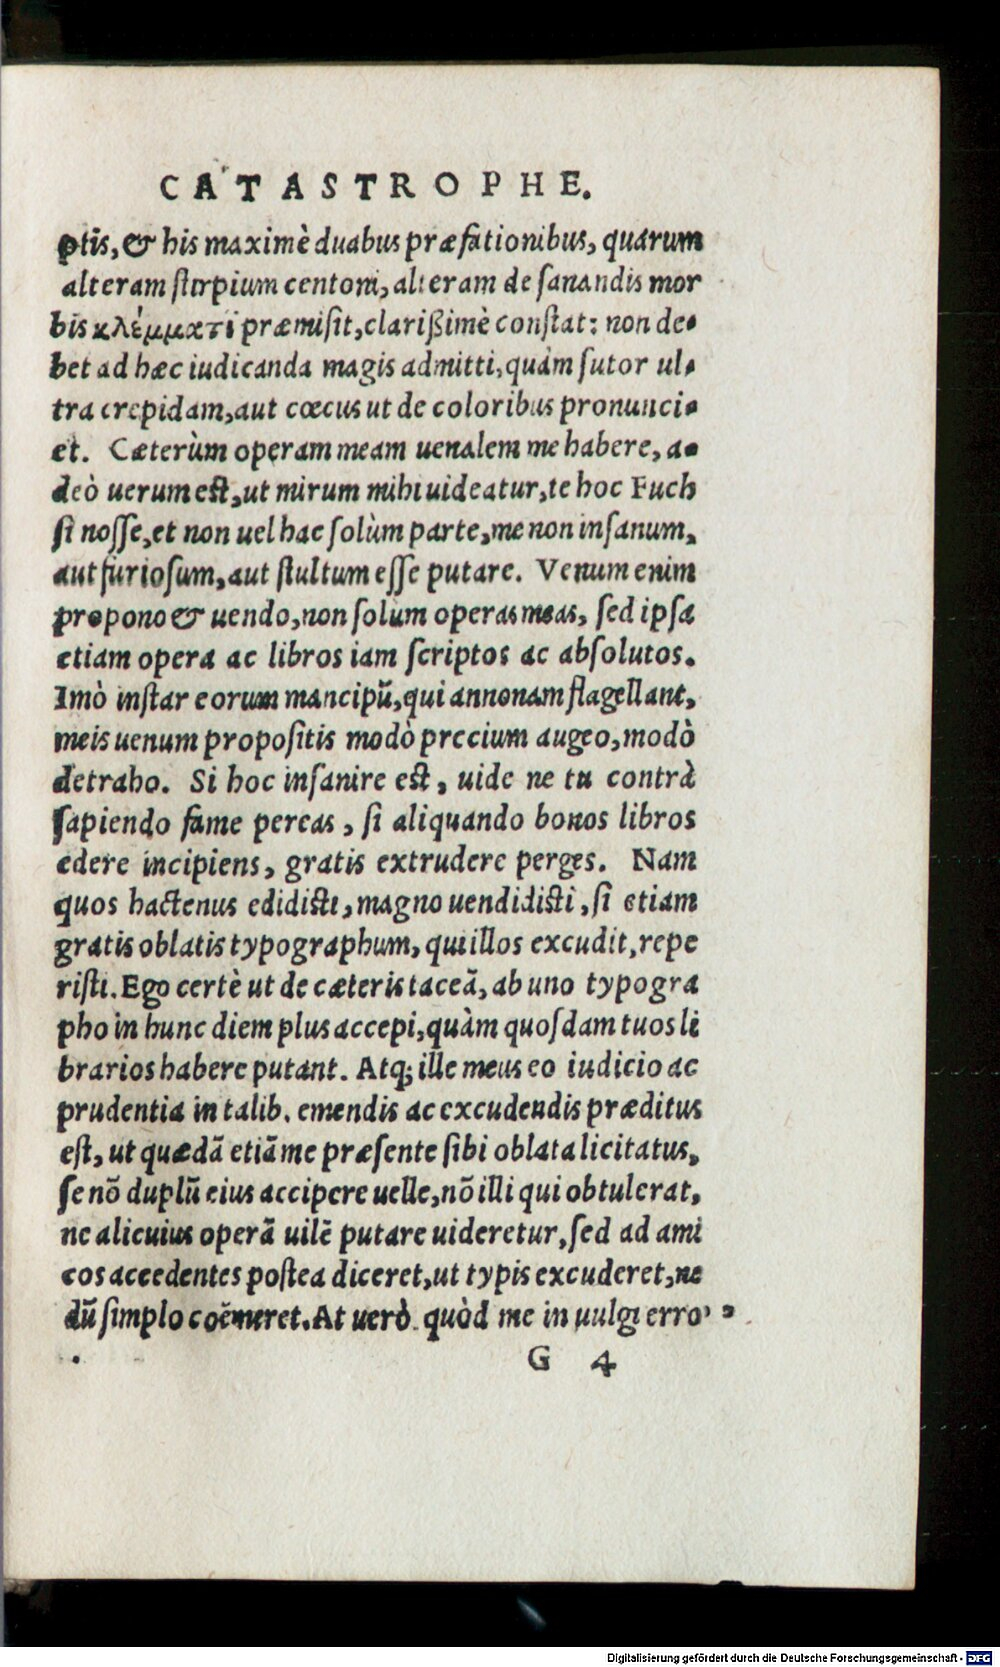 CATASTROPHE.
ptis, & his maximè duabus præfationibus, quarum
alteram stirpium centoni, alteram de sanandis mor
bis κλέμματι præmisit, clarißimè constat: non de-
bet ad hæc iudicanda magis admitti, quàm sutor ul-
tra crepidam, aut cœcus ut de coloribus pronunci-
et. Cæterùm operam meam uenalem me habere, a-
deò uerum est, ut mirum mihi uideatur, te hoc Fuch
si nosse, et non uel hac solùm parte, me non insanum,
aut furiosum, aut stultum esse putare. Venum enim
propono & uendo, non solum operas meas, sed ipsa
etiam opera ac libros iam scriptos ac absolutos.
Imò instar eorum mancipũ, qui annonam flagellant,
meis uenum propositis modò precium augeo, modò
detraho. Si hoc insanire est, uide ne tu contrà
sapiendo fame pereas, si aliquando bonos libros
edere incipiens, gratis extrudere perges. Nam
quos hactenus edidisti, magno uendidisti, si etiam
gratis oblatis typographum, qui illos excudit, repe
risti. Ego certè ut de cæteris taceã, ab uno typogra
pho in hunc diem plus accepi, quàm quosdam tuos li
brarios habere putant. Atq; ille meus eo iudicio ac
prudentia in talib. emendis ac excudendis præditus
est, ut quædã etiã me præsente sibi oblata licitatus,
se nõ duplũ eius accipere uelle, nõ illi qui obtulerat,
ne alicuius operã uilẽ putare uideretur, sed ad ami
cos accedentes postea diceret, ut typis excuderet, ne
dũ simplo coẽmeret. At uerò quòd me in uulgi erro-
G 4
Digitalisierung gefördert durch die Deutsche Forschungsgemeinschaft - DFG